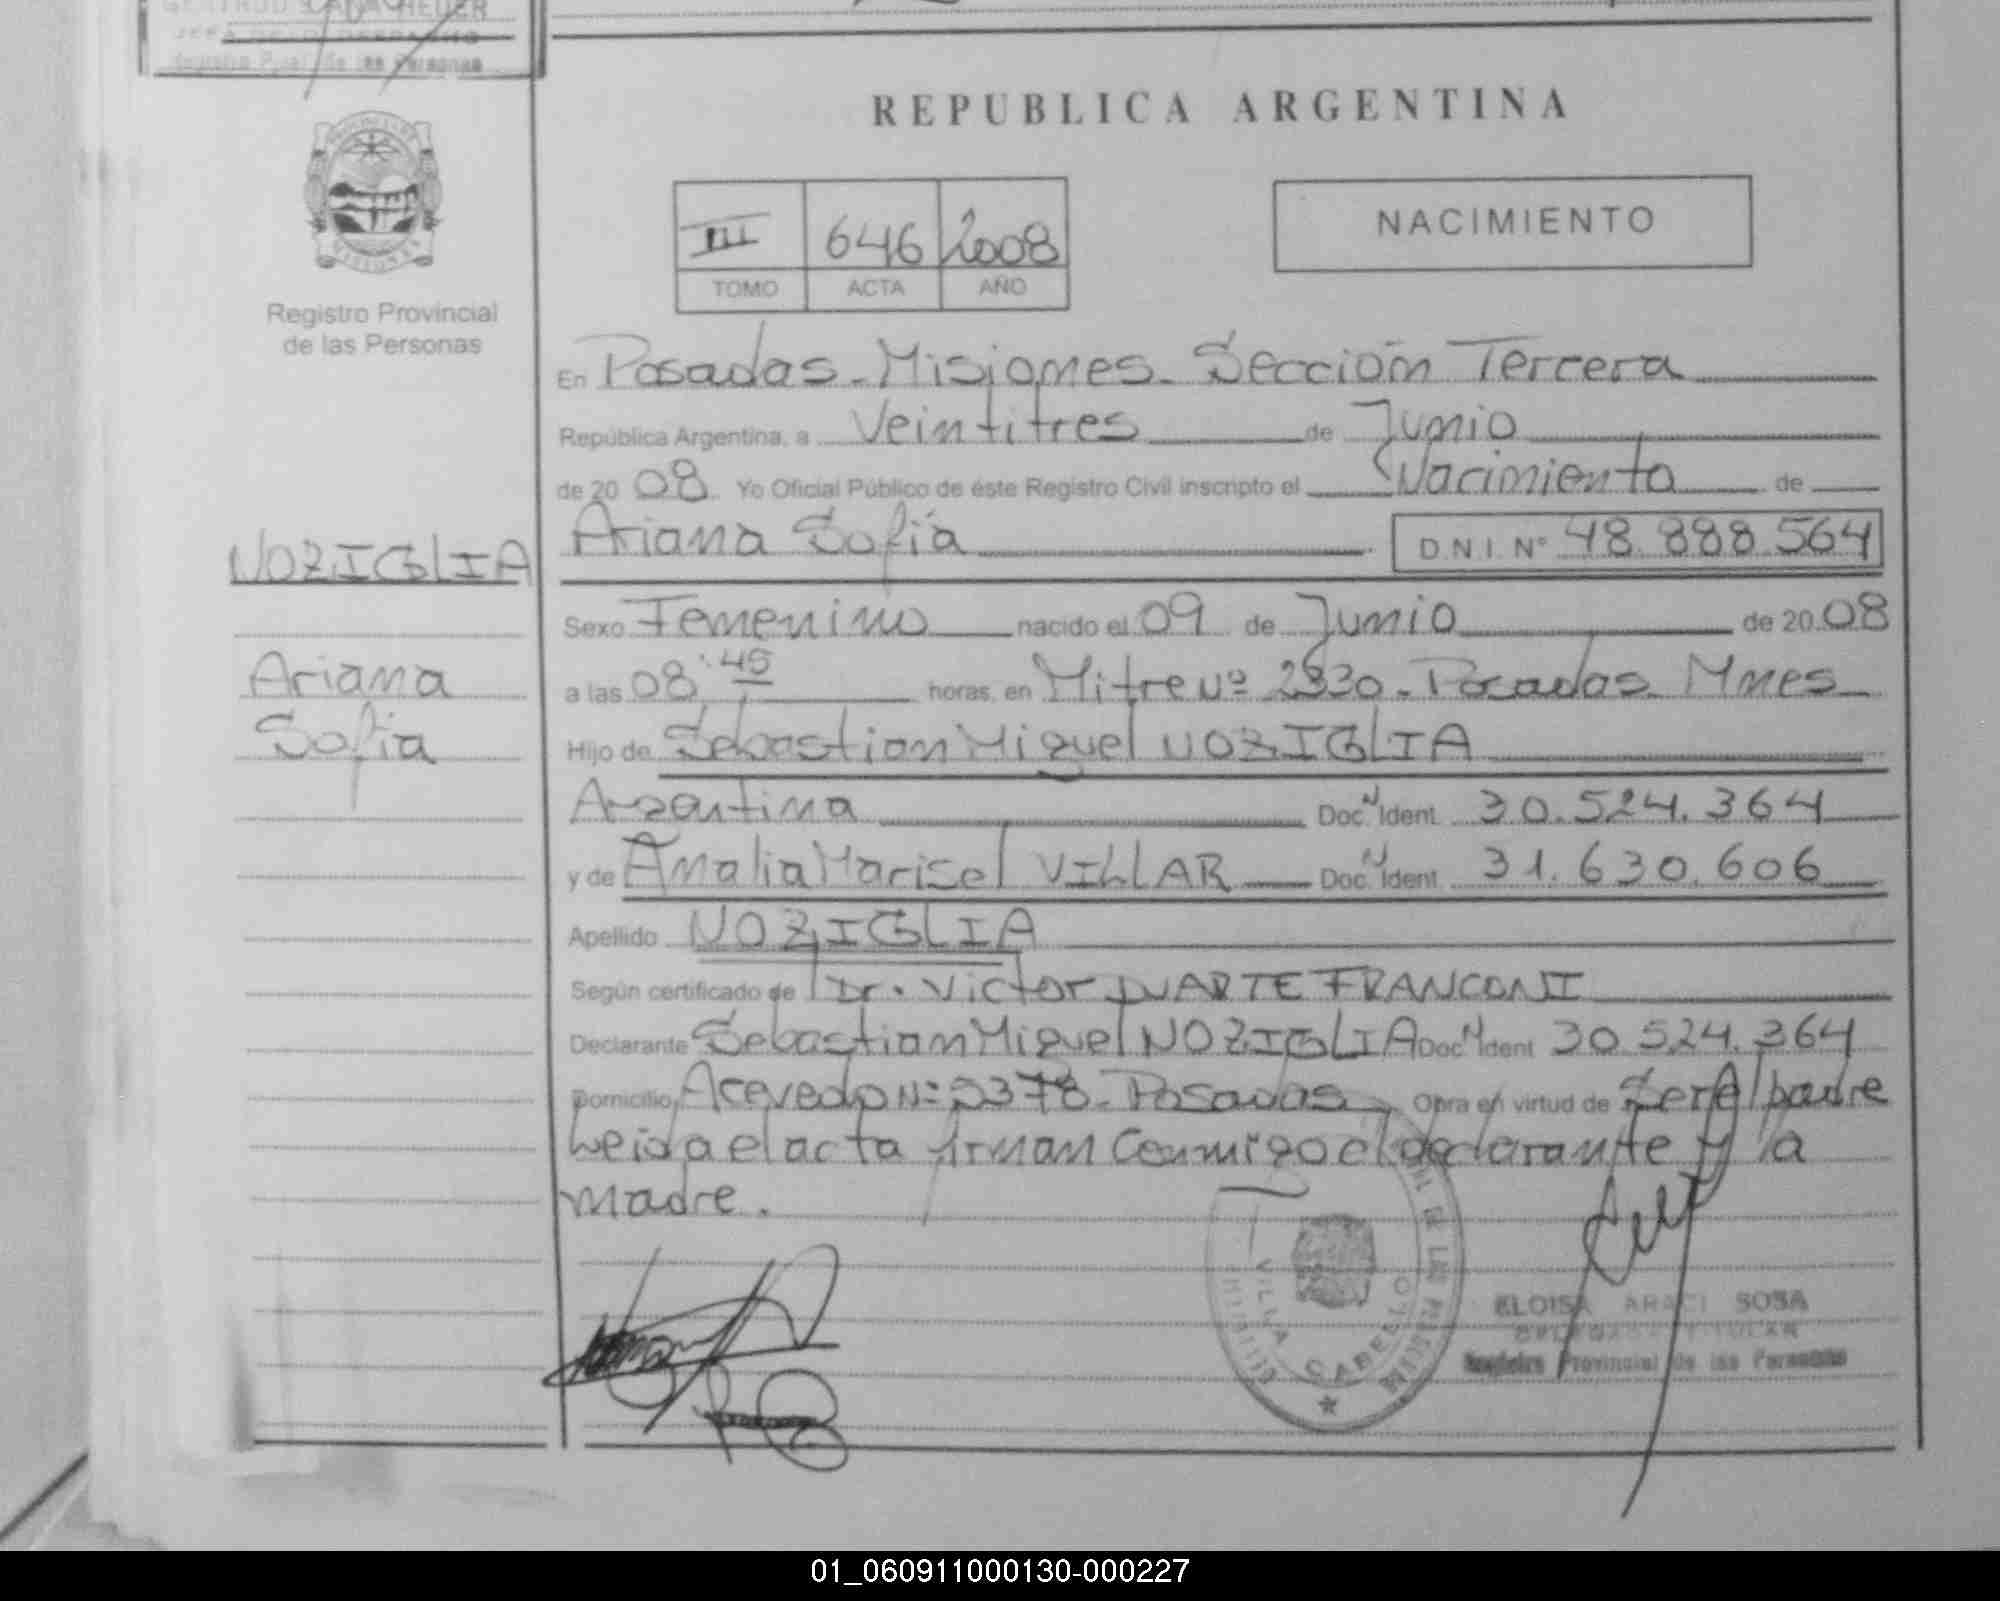 GERTRUD S ANA HEDER
JEFA DE D DESPACHO
Registro Pcial de las Personas
REPUBLICA ARGENTINA
III 646 2008
TOMO ACTA AÑO
NACIMIENTO
Registro Provincial
de las Personas
En Posadas - Misiones - Sección Tercera
República Argentina, a Veintitres de Junio
de 2008 Yo Oficial Público de éste Registro Civil inscripto el Nacimiento de
NOZIGLIA
Ariana Sofía D.N.I. Nº 48.888.564
Sexo Femenino nacido el 09 de Junio de 2008
Ariana
Sofia
a las 08:45 horas, en Mitre Nº 2830 - Posadas Mnes
Hijo de Sebastian Miguel NOZIGLIA
Argentina Doc. N Ident. 30.524.364
y de Amalia Marisel VILLAR Doc. N Ident. 31.630.606
Apellido NOZIGLIA
Según certificado de Dr. Victor DUARTE FRANCONI
Declarante Sebastian Miguel NOZIGLIA Doc. N Ident 30.524.364
Domicilio Acevedo Nº 2378 - Posadas Obra en virtud de Ser el padre
Leida el acta firman Conmigo el declarante y la
madre.
VILLA CABELLO
ELOISA ARACI SOSA
DELEGADA TITULAR
Registro Provincial de las Personas
01_060911000130-000227